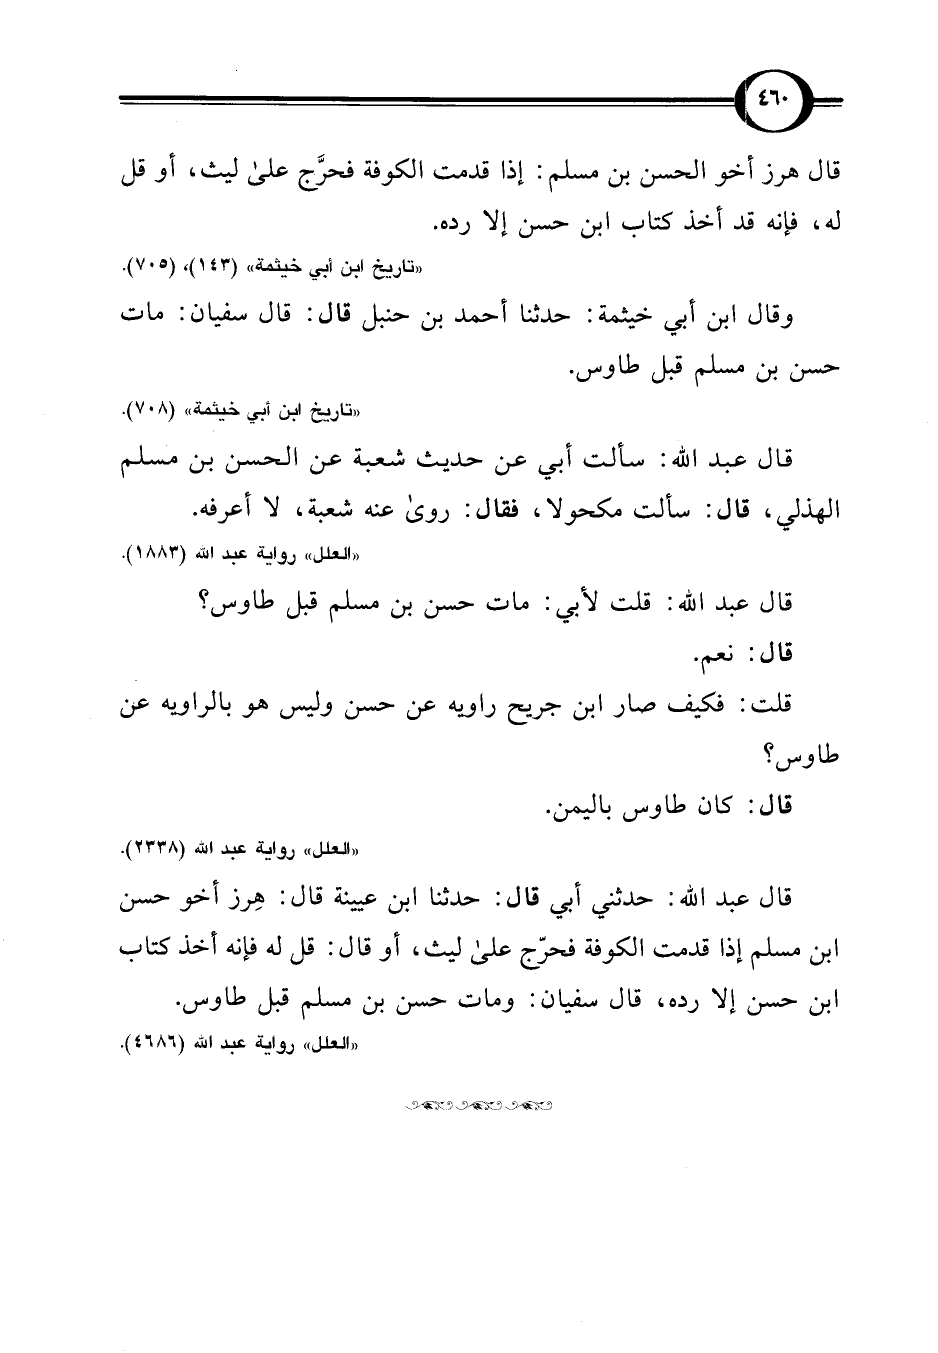 ٤٦٠
قال هرز أخو الحسن بن مسلم: إذا قدمت الكوفة فحرَّج علىٰ ليث، أو قل
له، فإنه قد أخذ كتاب ابن حسن إلا رده.
«تاريخ ابن أبي خيثمة» (١٤٣)، (٧٠٥).
وقال ابن أبي خيثمة: حدثنا أحمد بن حنبل قال: قال سفيان: مات
حسن بن مسلم قبل طاوس.
«تاريخ ابن أبي خيثمة» (٧٠٨).
قال عبد الله: سألت أبي عن حديث شعبة عن الحسن بن مسلم
الهذلي، قال: سألت مكحولا، فقال: روىٰ عنه شعبة، لا أعرفه.
«العلل» رواية عبد الله (١٨٨٣).
قال عبد الله: قلت لأبي: مات حسن بن مسلم قبل طاوس؟
قال: نعم.
قلت: فكيف صار ابن جريح راويه عن حسن وليس هو بالراويه عن
طاوس؟
قال: كان طاوس باليمن.
«العلل» رواية عبد الله (٢٣٣٨).
قال عبد الله: حدثني أبي قال: حدثنا ابن عيينة قال: هِرز أخو حسن
ابن مسلم إذا قدمت الكوفة فحرّج علىٰ ليث، أو قال: قل له فإنه أخذ كتاب
ابن حسن إلا رده، قال سفيان: ومات حسن بن مسلم قبل طاوس.
«العلل» رواية عبد الله (٤٦٨٦).